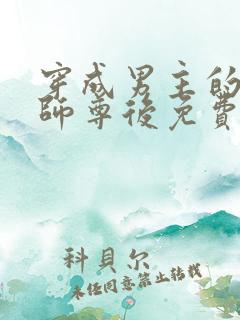 穿成男主的
師尊後免費
科貝尔
未经同意禁止转载